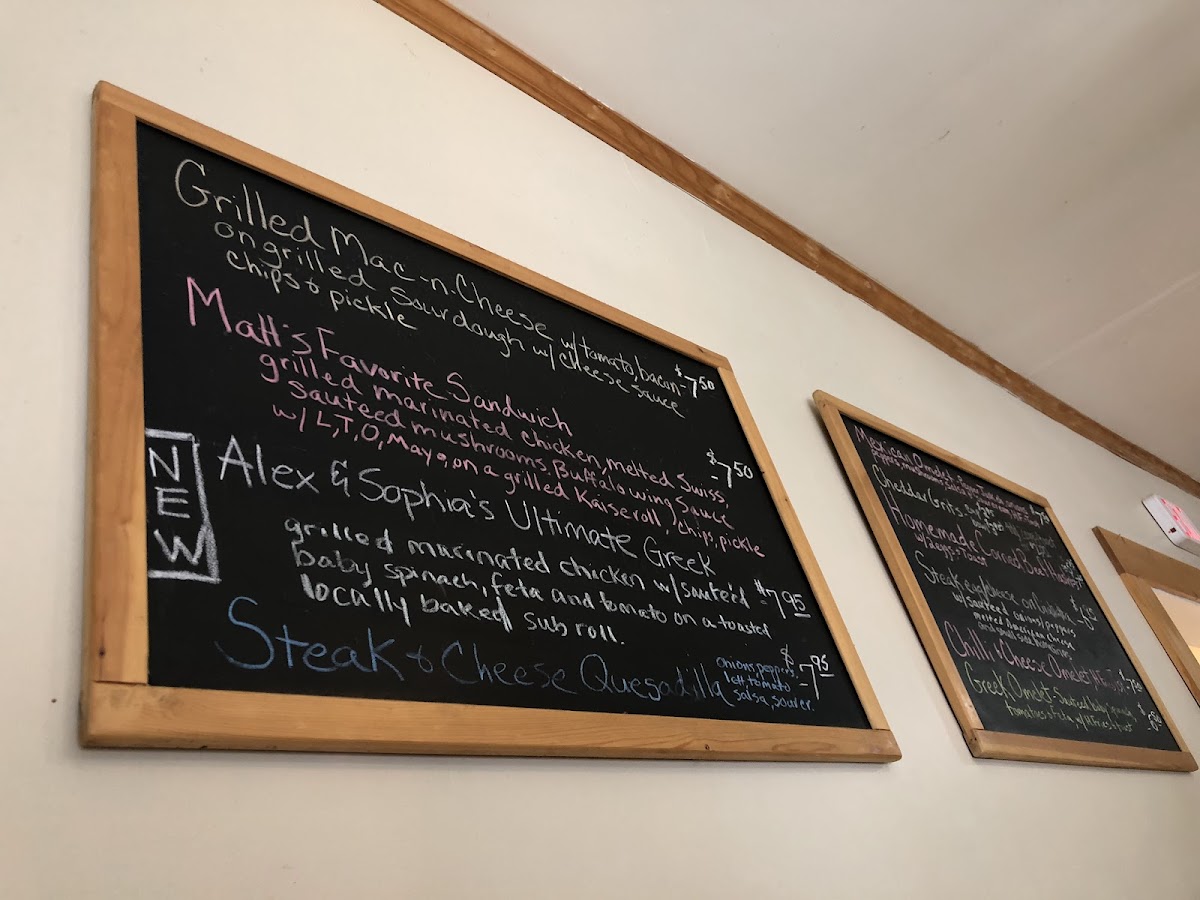 Grilled Mac-n-Cheese w/tomato, bacon - $7.50
on grilled Sourdough w/ Cheese sauce
chips & pickle
Matt's Favorite Sandwich,
grilled marinated chicken, melted Swiss, - $7.50
sauteed mushrooms, Buffalo wing sauce
w/ L,T,O, Mayo, on a grilled Kaiseroll, chips, pickle
NEW
Alex & Sophia's Ultimate Greek
grilled marinated chicken w/ sauteéd - $7.95
baby spinach, feta and tomato on a toasted
locally baked sub roll.
Steak & Cheese Quesadilla onions, peppers, - $7.95
lett tomato
salsa, sour cr.
Mexican Omelet-
Cheddar Grits
Homemade Corned Beef Hash
w/2eggs + Toast
Steak egg cheese on
w/ sauteed onions/peppers
melted american cheese
Chilli & Cheese Omelet
Greek Omelet - Sauteed baby spinach,
tomatoes & Feta, w/